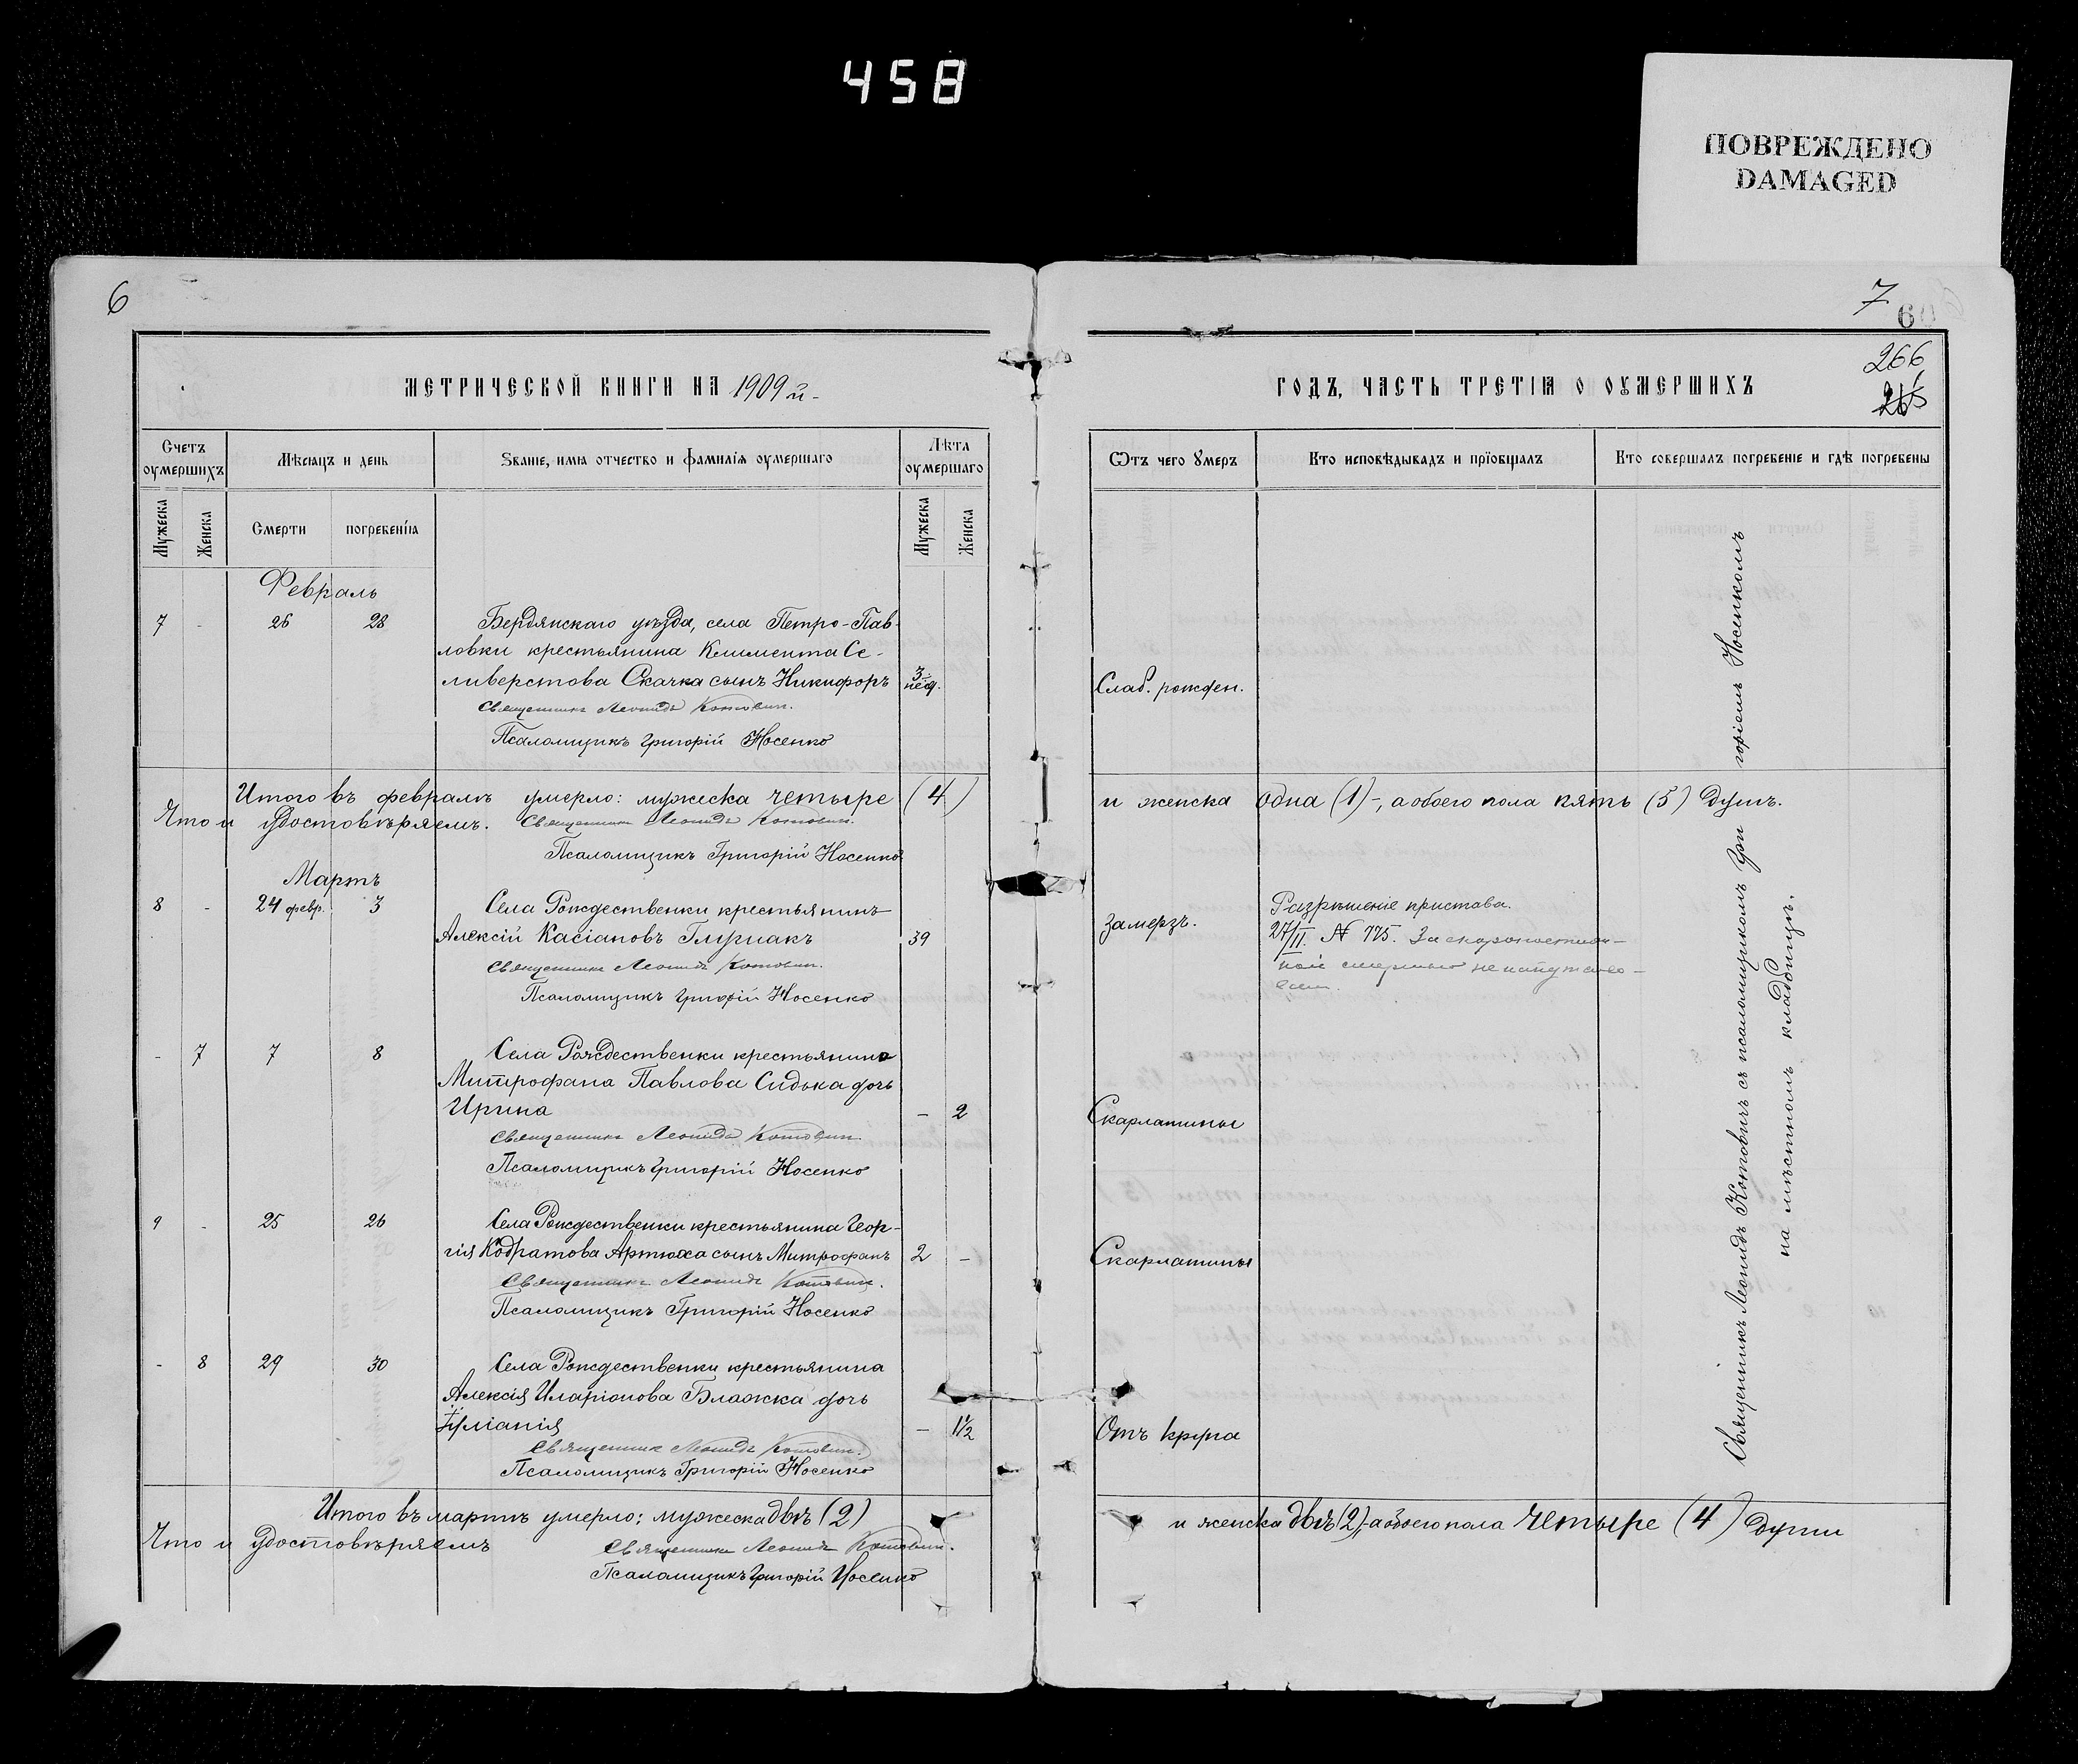 458
ПОВРЕЖДЕНО
DAMAGED
6
МЕТРИЧЕСКОЙ КНИГИ НА 1909 й.
Счетъ оумершихъ
Мѣсяцъ и день
Званіе, имя отчество и фамилія оумершаго
Лѣта оумершаго
Мужеска
Женска
Смерти
погребенія
Мужеска
Женска
Февраль
7 - 26 28 Бердянскаго уѣзда, села Петро-Пав-
ловки крестьянина Климента Се-
ливерстова Скачка сынъ Никифоръ 3 нед.
Священникъ Леонидъ Котович.
Псаломщикъ Григорій Носенко
Итого въ февралѣ умерло: мужеска четыре (4)
Что и удостовѣряемъ. Священникъ Леонидъ Котович.
Псаломщикъ Григорій Носенко
Мартъ
8 - 24 февр. 3 Села Рождественки крестьянинъ
Алексій Касіановъ Глушакъ 39
Священникъ Леонидъ Котович.
Псаломщикъ Григорій Носенко
- 7 7 8 Села Рождественки крестьянина
Митрофана Павлова Сидька дочь
Ирина - 2
Священникъ Леонидъ Котович.
Псаломщикъ Григорій Носенко
9 - 25 26 Села Рождественки крестьянина Геор-
гія Кодратова Артюха сынъ Митрофанъ 2 -
Священникъ Леонидъ Котович.
Псаломщикъ Григорій Носенко
- 8 29 30 Села Рождественки крестьянина
Алексія Иларіонова Блажка дочь
- 1 1/2
Священникъ Леонидъ Котович.
Псаломщикъ Григорій Носенко
Итого въ мартѣ умерло: мужеска двѣ (2)
Что и удостовѣряемъ Священникъ Леонидъ Котович.
Псаломщикъ Григорій Носенко
7
60
266
265
ГОДЪ, ЧАСТЬ ТРЕТІЯ О ОУМЕРШИХЪ
Ѿтъ чего Умеръ
Кто исповѣдывадъ и пріобщалъ
Кто совершалъ погребеніе и гдѣ погребены
Слаб. рожден.
и женска одна (1)-, а обоего пола пять (5) душъ.
Замерзъ.
Разрѣшеніе пристава.
27/II. № 775. За скоропостиж-
ной смертью не напутство-
Скарлатины
Скарлатины
Отъ крупа
Священникъ Леонидъ Котовичъ съ псаломщикомъ Гри горіемъ Носенкомъ
на мѣстномъ кладбищѣ.
и женска двѣ (2), а обоего пола четыре (4) души